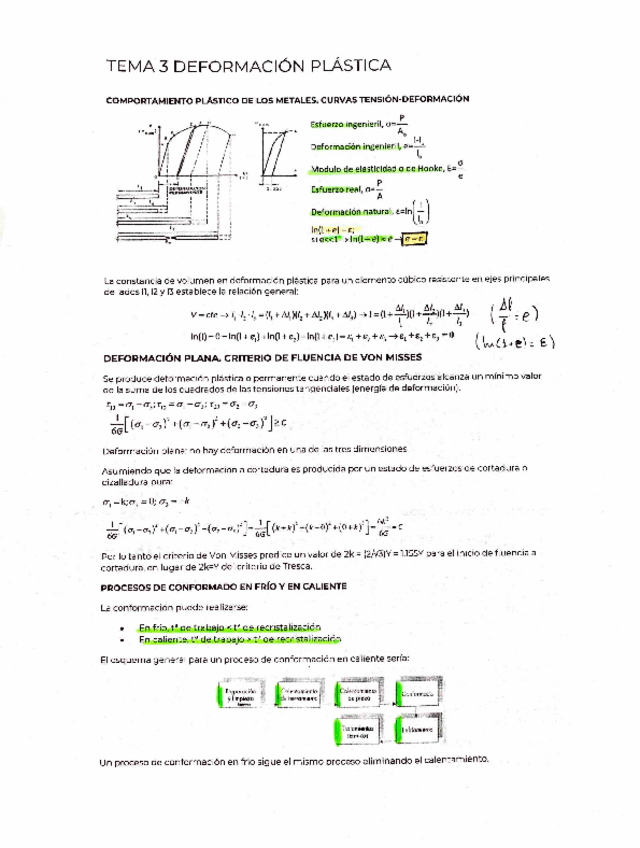 TEMA 3 DEFORMACIÓN PLÁSTICA
COMPORTAMIENTO PLÁSTICO DE LOS METALES. CURVAS TENSIÓN-DEFORMACIÓN
Esfuerzo ingenieril, σ=P/A₀
Deformación ingenieril, e=(l-l₀)/l₀
Modulo de elasticidad o de Hooke, E=σ/e
Esfuerzo real, σ=P/A
Deformación natural, ε=ln(l/l₀)
DEFORMACIÓN PERMANENTE
La constancia de volumen en deformación plástica para un elemento cúbico resistente en ejes principales
de lados l1, l2 y l3 establece la relación general:
(Δl/l = e)
(ln(1+e) = ε)
DEFORMACIÓN PLANA. CRITERIO DE FLUENCIA DE VON MISSES
Se produce deformación plástica o permanente cuando el estado de esfuerzos alcanza un mínimo valor
de la suma de los cuadrados de las tensiones tangenciales (energía de deformación).
1/6G[(σ₁-σ₂)²+(σ₁-σ₃)²+(σ₂-σ₃)²]≥C
Deformación plana: no hay deformación en una de las tres dimensiones
Asumiendo que la deformación a cortadura es producida por un estado de esfuerzos de cortadura o
cizalladura pura:
Por lo tanto el criterio de Von Misses predice un valor de 2k = (2/√3)Y = 1.155Y para el inicio de fluencia a
cortadura, en lugar de 2k=Y del criterio de Tresca.
PROCESOS DE CONFORMADO EN FRÍO Y EN CALIENTE
La conformación puede realizarse:
• En frío, tª de trabajo < tª de recristalización
• En caliente, tª de trabajo > tª de recristalización
El esquema general para un proceso de conformación en caliente sería:
Preparación y limpieza
Calentamiento de herramienta
Calentamiento de pieza
Conformado
Tratamientos térmicos
Enfriamiento
Un proceso de conformación en frío sigue el mismo proceso eliminando el calentamiento.